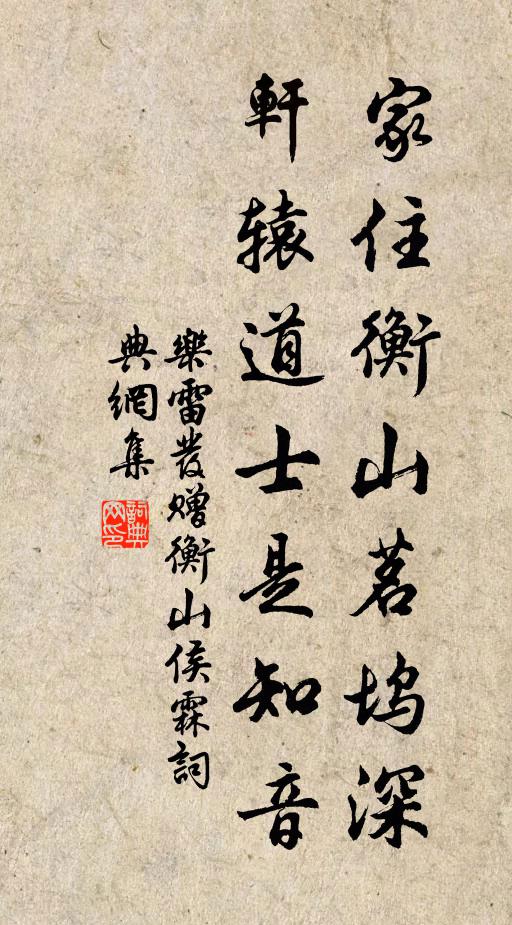 家住衡山茗坞深
軒辕道士是知音
樂雷發贈衡山侯霖詞
典網集
詞典网印